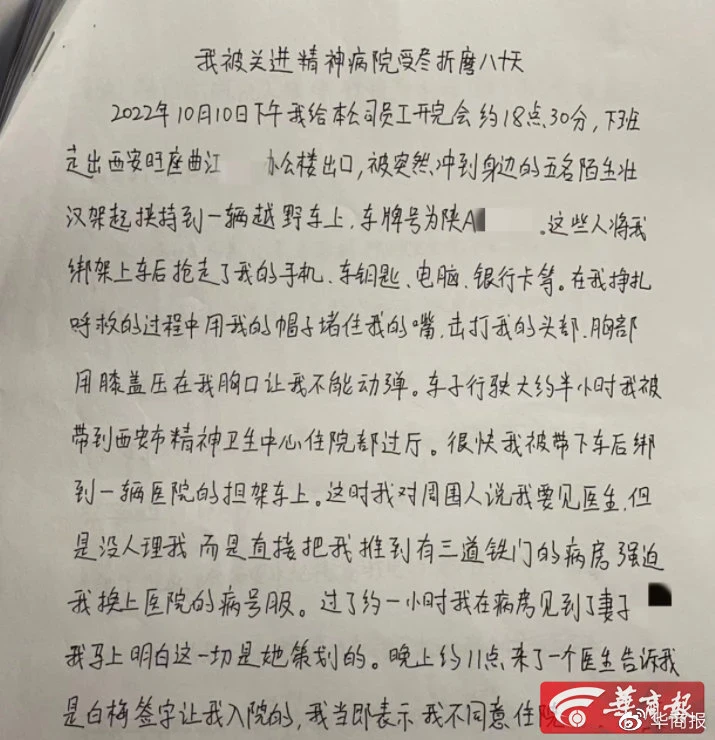 我被关进精神病院受尽折磨八十天
2022年10月10日下午我给本公司员工开完会约18点30分，下班
走出西安旺座曲江 办公楼出口，被突然冲到身边的五名陌生壮
汉架起挟持到一辆越野车上，车牌号为陕A 。这些人将我
绑架上车后抢走了我的手机、车钥匙、电脑、银行卡等。在我挣扎
呼救的过程中用我的帽子堵住我的嘴，击打我的头部、胸部
用膝盖压在我胸口让我不能动弹。车子行驶大约半小时我被
带到西安市精神卫生中心住院部过厅。很快我被带下车后绑
到一辆医院的担架车上。这时我对周围人说我要见医生，但
是没人理我而是直接把我推到有三道铁门的病房强迫
我换上医院的病号服。过了约一小时我在病房见到了妻子
我马上明白这一切是她策划的。晚上约11点来了一个医生告诉我
是白梅签字让我入院的，我当即表示我不同意住院
華商報
华商报